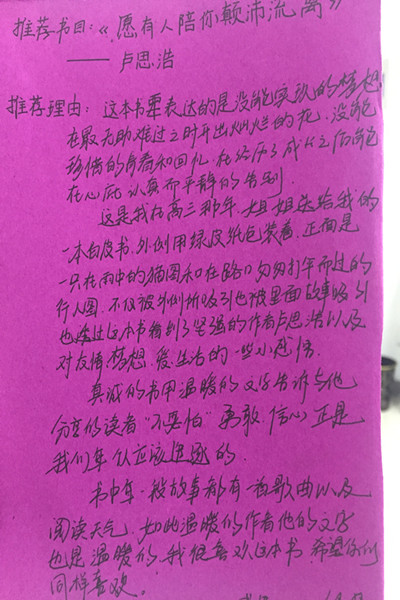 推荐书目:《愿有人陪你颠沛流离》
——卢思浩
推荐理由:这本书要表达的是没能实现的梦想
在最无助难过之时开出灿烂的花,没能
珍惜的青春和回忆,在经历了成长之后能
在心底认真而平静的告别.
这是我在高三那年,姐姐送给我的
一本白皮书,外侧用绿皮纸包装着,正面是
一只在雨中的猫图和在路口匆匆打伞而过的
行人图.不仅被外侧所吸引也被里面故事吸引
也透过这本书看到了坚强的作者卢思浩以及
对友情,梦想,爱,生活的一些小感悟.
真诚的书用温暖的文字告诉与他
分享的读者"不要怕"勇敢,信心正是
我们年轻人应该追逐的.
书中每一段故事都有一首歌曲以及
阅读天气,如此温暖的作者他的文字
也是温暖的,我很喜欢这本书,希望你们
同样喜欢.